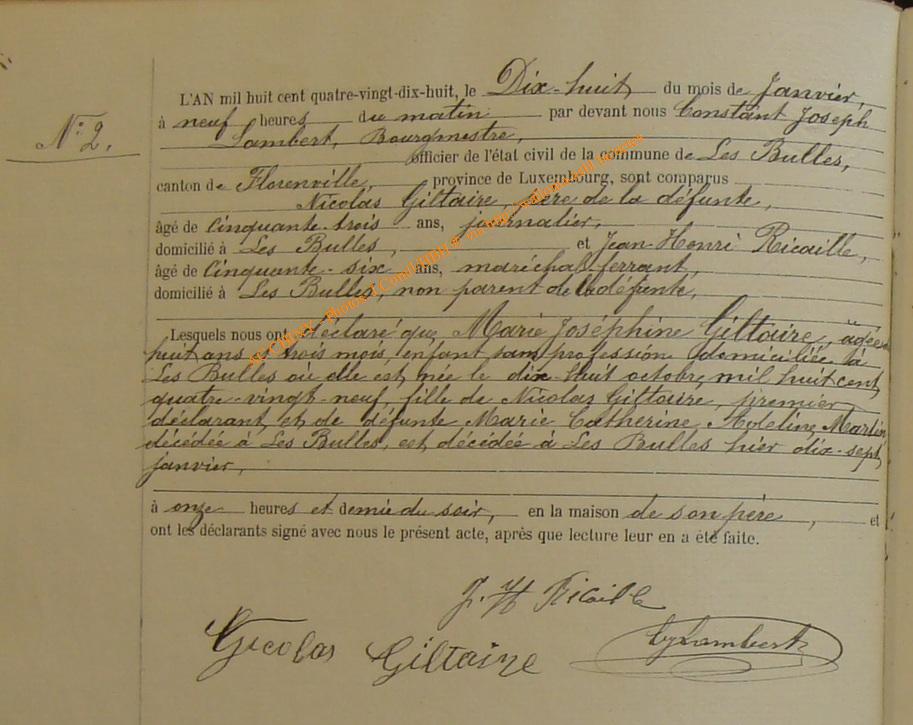 N° 2.
L'AN mil huit cent quatre-vingt-dix-huit, le Dix-huit du mois de Janvier,
à neuf heures du matin par devant nous Constant Joseph
Lambert, Bourgmestre,
officier de l'état civil de la commune de Les Bulles,
canton de Florenville, province de Luxembourg, sont comparus
Nicolas Giltaire, père de la défunte,
âgé de Cinquante-trois ans, journalier,
domicilié à Les Bulles, et Jean Henri Ricaille,
âgé de Cinquante-six ans, maréchal-ferrant,
domicilié à Les Bulles, non parent de la défunte,
Lesquels nous ont déclaré que Marie Joséphine Giltaire, âgée
huit ans et trois mois, enfant, sans profession domiciliée à
Les Bulles où elle est née le dix-huit octobre mil huit cent
quatre-vingt-neuf, fille de Nicolas Giltaire, premier
déclarant, et de défunte Marie Catherine Adeline Martin
décédée à Les Bulles, est décédée à Les Bulles hier dix-sept
janvier,
à onze heures et demie du soir, en la maison de son père, et
ont les déclarants signé avec nous le présent acte, après que lecture leur en a été faite.
J. H Ricaille
Nicolas Giltaire
CJ Lambert